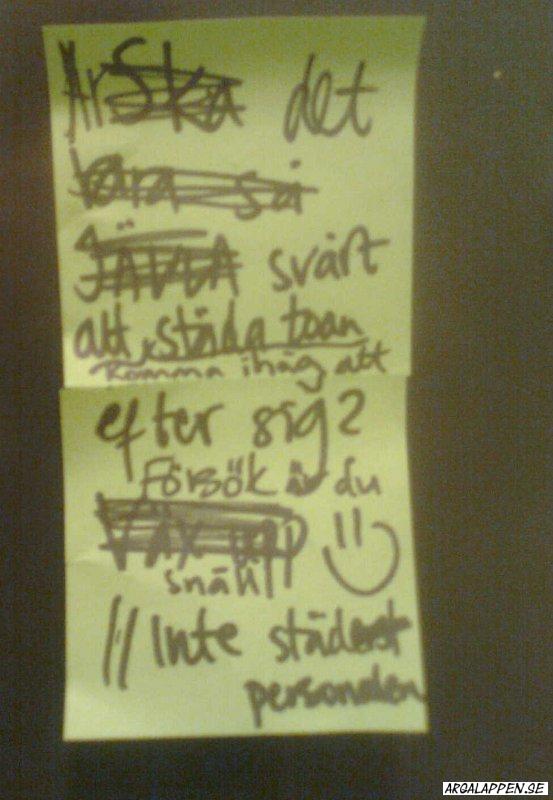 Är Ska det
vara så
JÄVLA svårt
att städa toan
komma ihåg att
efter sig?
Försök är du
Väx upp
snäll
// Inte städ
personalen
ARGALAPPEN.SE